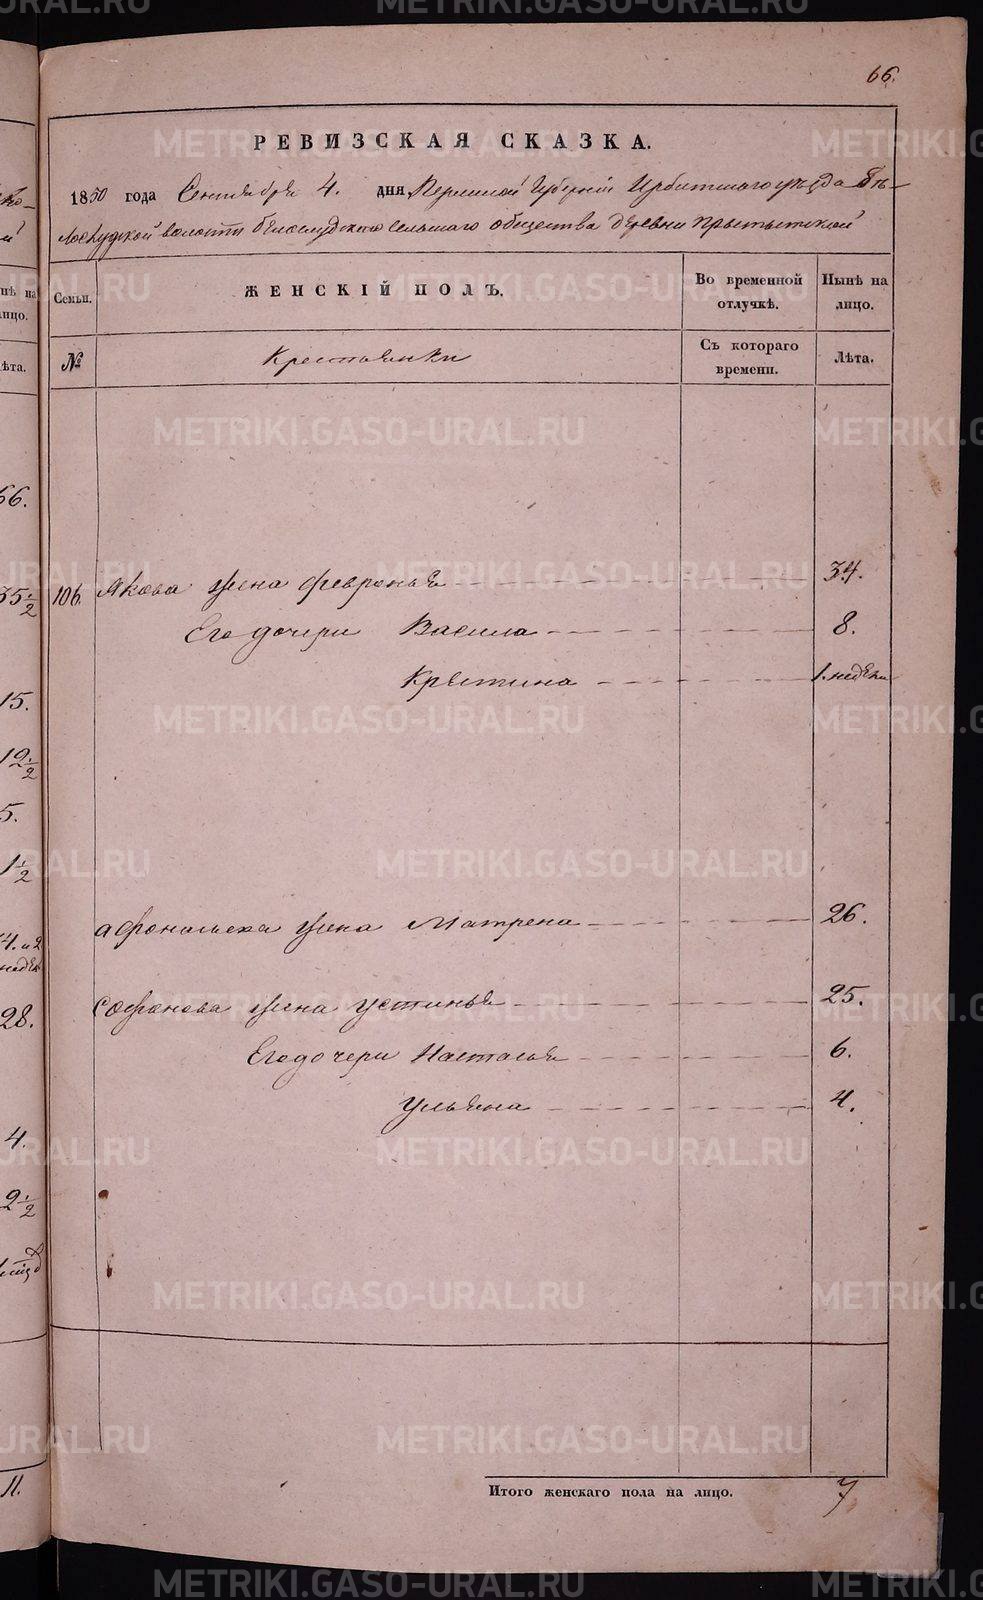 66.
РЕВИЗСКАЯ СКАЗКА.
1850 года Сентября 4. дня Пермской Губерніи Ирбитскаго уезда Бе-
лослудской волости белослудскаго сельскаго общества деревни
Семьи.
ЖЕНСКІЙ ПОЛЪ.
Во временной отлучкѣ.
Нынѣ на лицо.
№
Крестьянки
Съ котораго времени.
Лѣта.
106. Якова жена февронья 34.
Его дочери Васила 8.
Крестина 1. недели
афонасьева жена Матрена 26.
софонова жена устинья 25.
Его дочери Настасья 6.
ульяна 4.
Итого женскаго пола на лицо. 7
66.
35 1/2
15.
12 1/2
5.
1 1/2
28.
4.
2 1/2
11.
METRIKI.GASO-URAL.RU